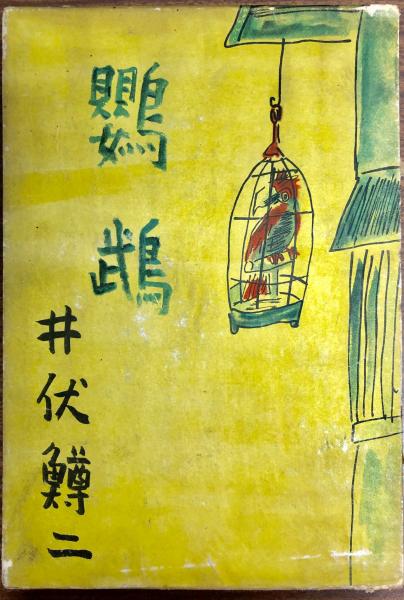 鸚鵡
井伏鱒二